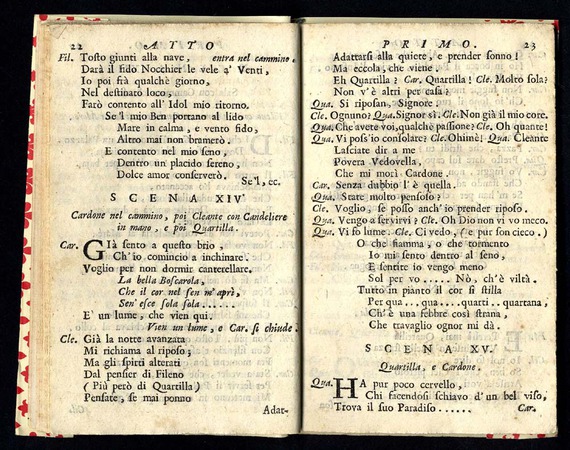 22 ATTO
Fil. Tosto giunti alla nave, entra nel cammino.
Darà il fido Nocchier le vele a' Venti,
Io poi frà qualchè giorno,
Nel destinato loco,
Farò contento all' Idol mio ritorno.
Se'l mio Ben portano al lido
Mare in calma, e vento fido,
Altro mai non bramerò.
E contento nel mio seno,
Dentro un placido sereno,
Dolce amor conserverò.
Se'l, ec.
SCENA XIV
Cardone nel cammino, poi Cleante con Candeliere
in mano, e poi Quartilla.
Car. Già sento a questo brio,
Ch'io comincio a inchinare.
Voglio per non dormir canterellare.
La bella Boscarola,
Che il cor nel sen m'aprì,
Sen' esce sola sola......
E' un lume, che vien quì.
Vien un lume, e Car. si chiude.
Cle. Già la notte avanzata
Mi richiama al riposo;
Ma gli spirti alterati
Dal pensier di Fileno
(Più però di Quartilla)
Pensate, se mai ponno
Adat-
PRIMO. 23
Adattarsi alla quiete, e prender sonno!
Ma eccola, che viene.
Eh Quartilla? Car. Quartilla! Cle. Molto sola?
Non v'è altri per casa?
Qua. Si riposan, Signore.
Cle. Ognuno? Qua. Signor sì. Cle. Non già il mio core.
Qua. Che avete voi, qualchè passione? Cle. Oh quante!
Qua. Vi poss'io consolare? Cle. Ohimè! Qua. Cleante
Lasciate dir a me
Povera Vedovella,
Che mi morì Cardone.
Car. Senza dubbio l'è quella.
Qua. State molto pensoso?
Cle. Voglio, se posso anch'io prender riposo.
Qua. Vengo a servirvi? Cle. Oh Dio non vi vo meco.
Qua. Vi fo lume. Cle. Ci vedo, (e pur son cieco.)
O che fiamma, o che tormento
Io mi sento dentro al seno,
E sentire io vengo meno
Sol per vo..... Nò, ch'è viltà.
Tutto in pianto il cor si stilla
Per qua.. qua.... quarti.. quartana,
Ch'è una febbre così strana,
Che travaglio ognor mi dà.
SCENA XV.
Quartilla, e Cardone.
Qua. HA pur poco cervello,
Chi facendosi schiavo d'un bel viso,
Trova il suo Paradiso......
Car.